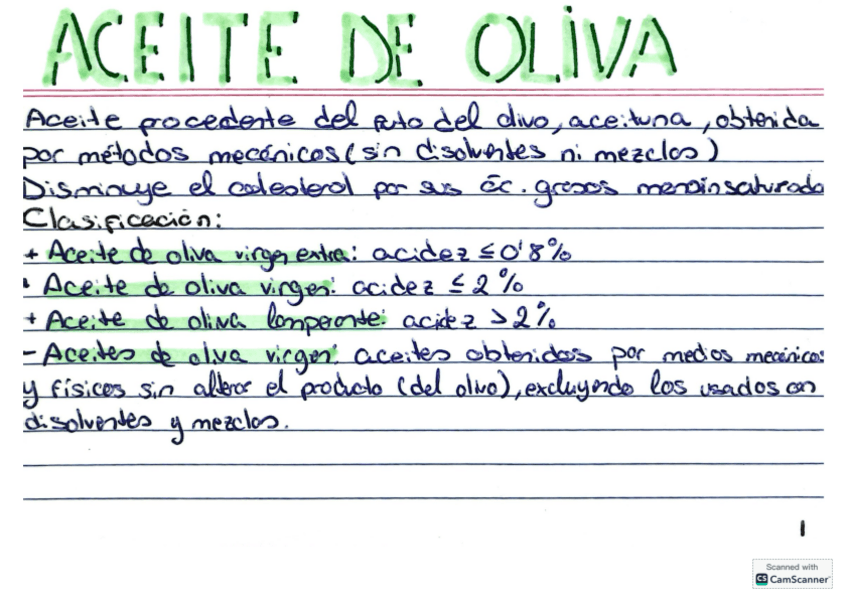 ACEITE DE OLIVA
Aceite procedente del fruto del olivo, aceituna, obtenida
por métodos mecánicos (sin disolventes ni mezclas)
Disminuye el colesterol por sus ác. grasos monoinsaturado
Clasificación:
+ Aceite de oliva virgen extra: acidez ≤ 0'8%
+ Aceite de oliva virgen: acidez ≤ 2%
+ Aceite de oliva lampante: acidez > 2%
- Aceites de oliva virgen: aceites obtenidos por medios mecánicos
y físicos sin alterar el producto (del olivo), excluyendo los usados con
disolventes y mezclas.
1
Scanned with
CS CamScanner